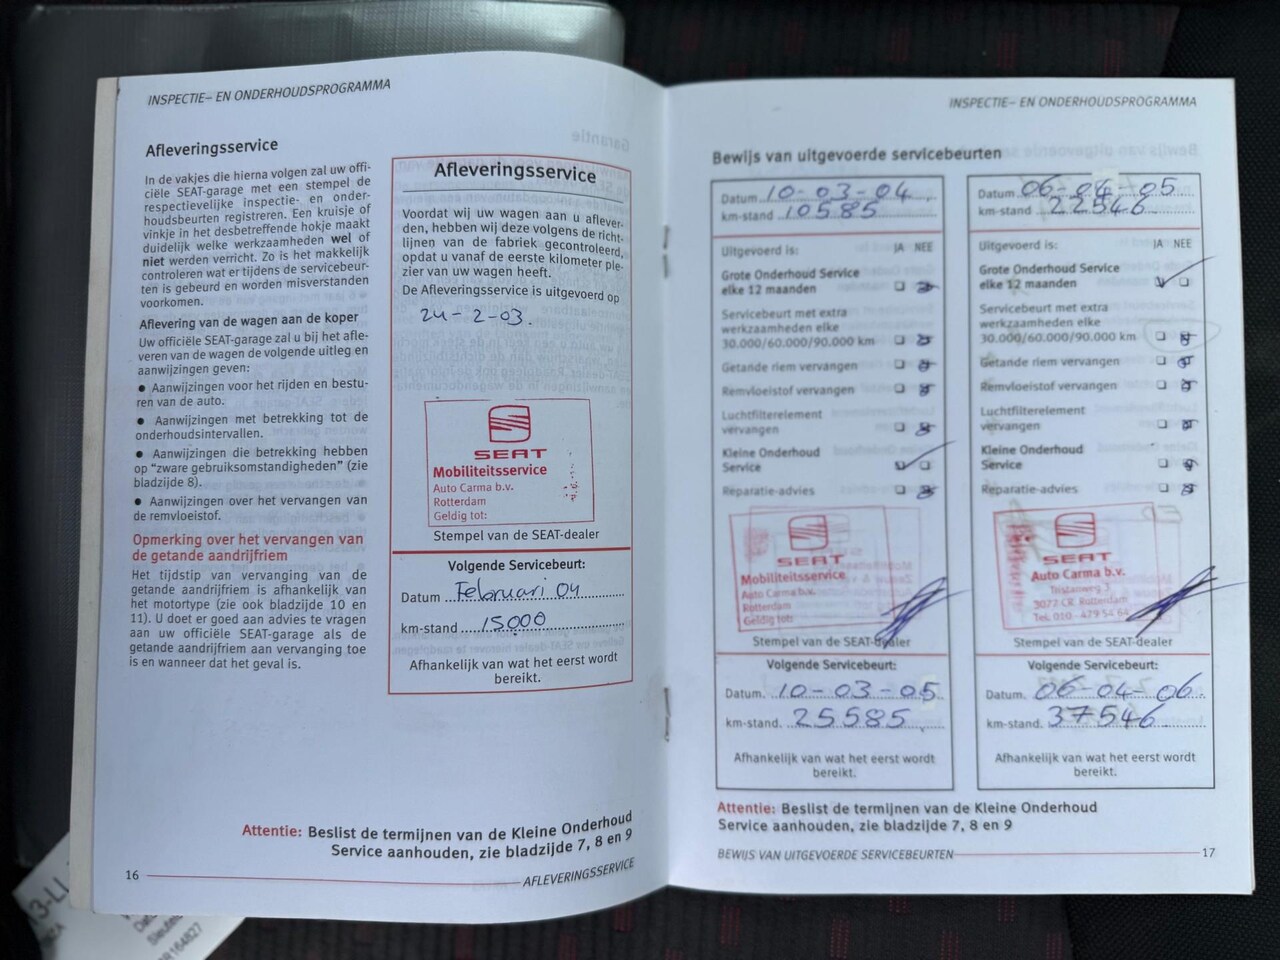 INSPECTIE– EN ONDERHOUDSPROGRAMMA
Afleveringsservice
In de vakjes die hierna volgen zal uw offi-
ciële SEAT-garage met een stempel de
respectievelijke inspectie- en onder-
houdsbeurten registreren. Een kruisje of
vinkje in het desbetreffende hokje maakt
duidelijk welke werkzaamheden wel of
niet werden verricht. Zo is het makkelijk
controleren wat er tijdens de servicebeur-
ten is gebeurd en worden misverstanden
voorkomen.
Aflevering van de wagen aan de koper
Uw officiële SEAT-garage zal u bij het afle-
veren van de wagen de volgende uitleg en
aanwijzingen geven:
● Aanwijzingen voor het rijden en bestu-
ren van de auto.
● Aanwijzingen met betrekking tot de
onderhoudsintervallen.
● Aanwijzingen die betrekking hebben
op “zware gebruiksomstandigheden” (zie
bladzijde 8).
● Aanwijzingen over het vervangen van
de remvloeistof.
Opmerking over het vervangen van
de getande aandrijfriem
Het tijdstip van vervanging van de
getande aandrijfriem is afhankelijk van
het motortype (zie ook bladzijde 10 en
11). U doet er goed aan advies te vragen
aan uw officiële SEAT-garage als de
getande aandrijfriem aan vervanging toe
is en wanneer dat het geval is.
Afleveringsservice
Voordat wij uw wagen aan u aflever-
den, hebben wij deze volgens de richt-
lijnen van de fabriek gecontroleerd,
opdat u vanaf de eerste kilometer ple-
zier van uw wagen heeft.
De Afleveringsservice is uitgevoerd op
24-2-03.
SEAT
Mobiliteitsservice
Auto Carma b.v.
Rotterdam
Geldig tot:
Stempel van de SEAT-dealer
Volgende Servicebeurt:
Datum Februari 04
km-stand 15000
Afhankelijk van wat het eerst wordt
bereikt.
Attentie: Beslist de termijnen van de Kleine Onderhoud
Service aanhouden, zie bladzijde 7, 8 en 9
16
AFLEVERINGSSERVICE
INSPECTIE– EN ONDERHOUDSPROGRAMMA
Bewijs van uitgevoerde servicebeurten
Datum 10-03-04
km-stand 10585
Uitgevoerd is: JA NEE
Grote Onderhoud Service
elke 12 maanden
Servicebeurt met extra
werkzaamheden elke
30.000/60.000/90.000 km
Getande riem vervangen
Remvloeistof vervangen
Luchtfilterelement
vervangen
Kleine Onderhoud
Service
Reparatie-advies
SEAT
Mobiliteitsservice
Auto Carma b.v.
Rotterdam
Geldig tot:
Stempel van de SEAT-dealer
Volgende Servicebeurt:
Datum. 10-03-05
km-stand. 25585
Afhankelijk van wat het eerst wordt
bereikt.
Datum 06-04-05
km-stand 22546
Uitgevoerd is: JA NEE
Grote Onderhoud Service
elke 12 maanden
Servicebeurt met extra
werkzaamheden elke
30.000/60.000/90.000 km
Getande riem vervangen
Remvloeistof vervangen
Luchtfilterelement
vervangen
Kleine Onderhoud
Service
Reparatie-advies
SEAT
Auto Carma b.v.
Tristanweg 3
3077 CR Rotterdam
Tel. 010 - 479 54 64
Stempel van de SEAT-dealer
Volgende Servicebeurt:
Datum. 06-04-06
km-stand. 37546
Afhankelijk van wat het eerst wordt
bereikt.
Attentie: Beslist de termijnen van de Kleine Onderhoud
Service aanhouden, zie bladzijde 7, 8 en 9
BEWIJS VAN UITGEVOERDE SERVICEBEURTEN
17